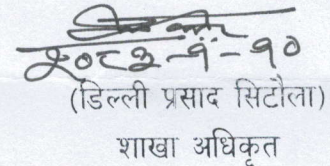 २०८३-१-१०
(डिल्ली प्रसाद सिटौला)
शाखा अधिकृत